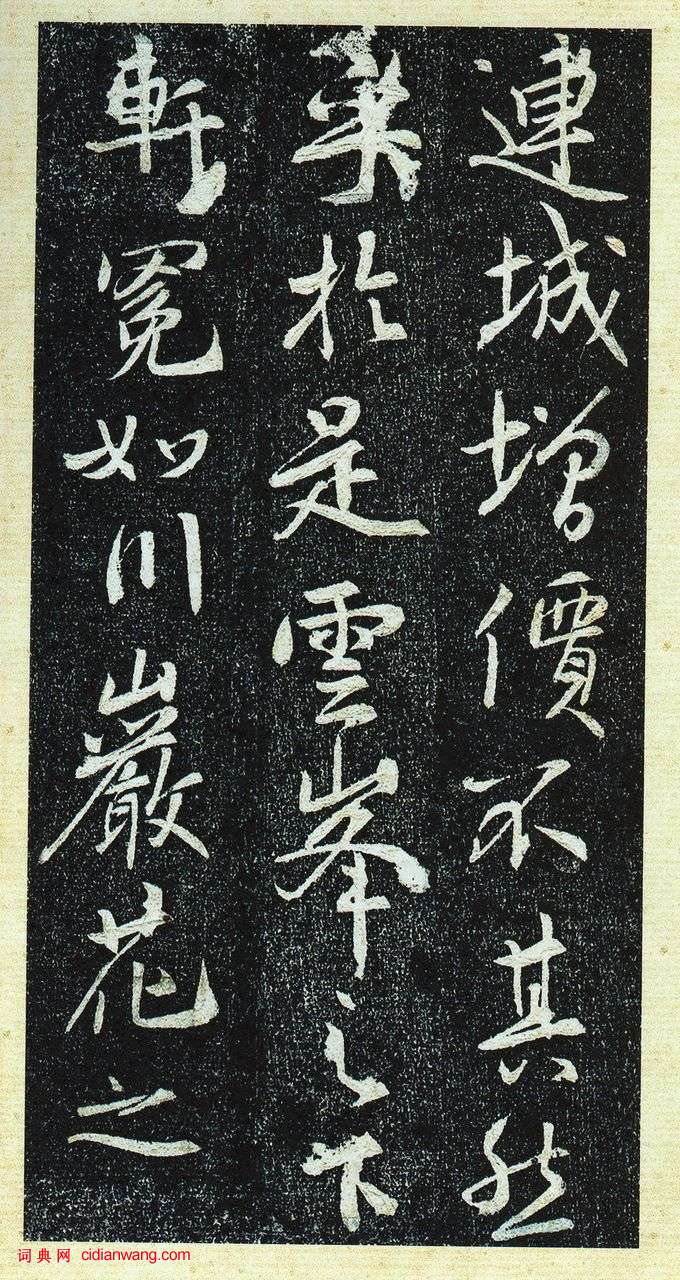 連城增價不其然
矣於是雲峯之下
軒冕如川巖花之
词典网 cidianwang.com